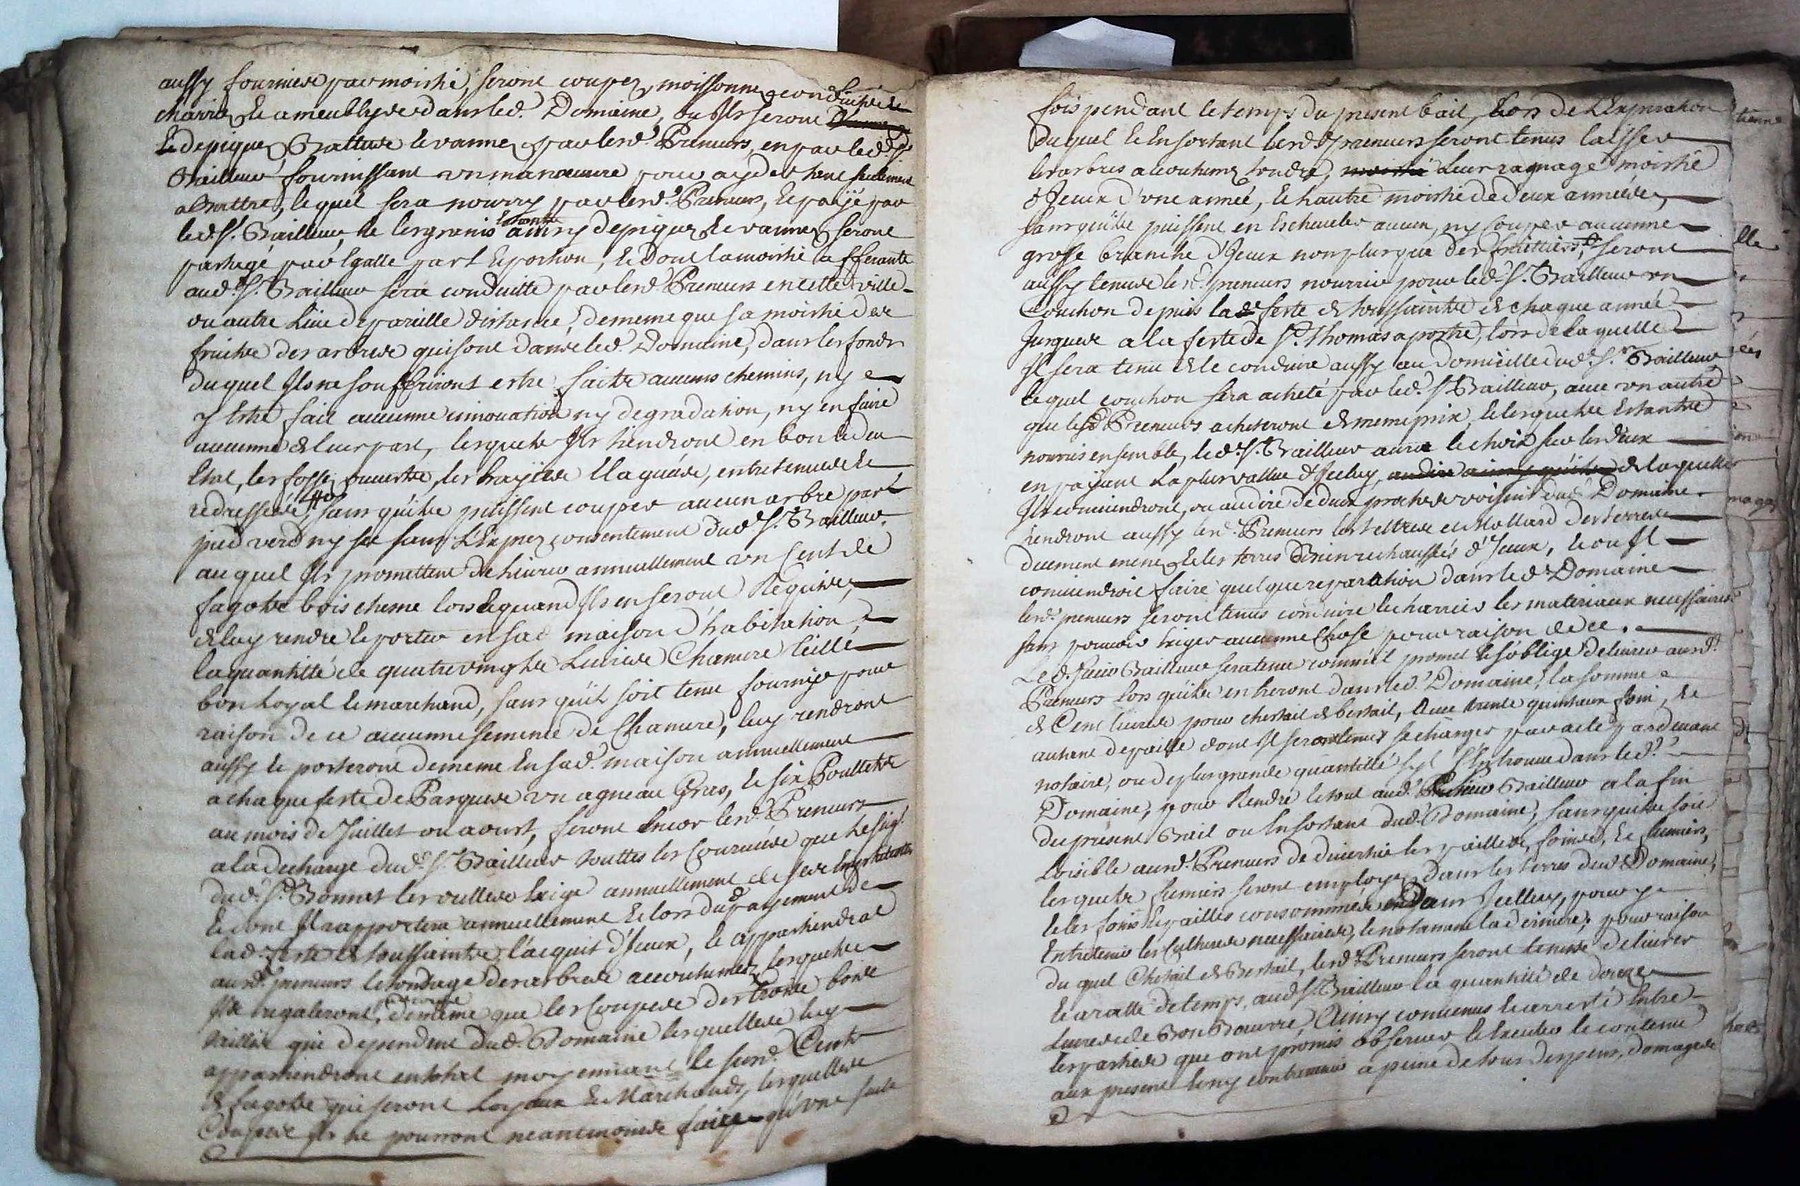 aussy fournie par moitié, seront coupez, moissonnez, conduits et
charriez et ameublys dans led. Domaine, ou Ils seront
Et depiquez, Batture et vannez par lesd. Preneurs, en par led. Sr.
Bailleur fournissant un manœuvre pour ayder tant seulement
a Battre, lequel sera nourry par lesd. Preneurs, et payé par
led. Sr. Bailleur, et les grains estants ainsy depiquez et vannez seront
partagé par Egalle part et portion, et dont la moitié afferante
aud. Sr. Bailleur sera conduitte par lesd. Preneurs en cette ville
ou autre Lieu de pareille distance, de meme que sa moitié des
fruits des arbres qui sont dans led. Domaine, dans les fonds
duquel Ils ne souffriront estre faits aucuns chemins, ny
y Estre fait aucunne innovation ny degradation, ny en faire
aucunne de leur part, lesquels Ils tiendront en bon et deu
Etat, les fossez ouverts, les hayes elaguées, entretenues et
redressées, sans qu'ils puissent couper aucun arbre par
pied verd ny sec sans L'Exprez consentement dud. Sr. Bailleur,
auquel Ils promettent delivrer annuellement un Cent de
fagots bois chesne lors et quand Ils en seront Requis,
de luy rendre et porter en sad. maison d'habitation,
la quantitté de quatre vingts Livres Chanvre teillé
bon Loyal et marchand, sans qu'il soit tenu fournir pour
raison de ce aucunne semence de Chanvre, luy rendront
aussy et porteront de meme En sad. maison annuellement
a chaque feste de Pasques un agneau Gras, et six Poullets
au mois de Juillet ou aoust, feront Encor lesd. Preneurs
a la decharge dud. Sr. Bailleur touttes les Courvées que le Sigr.
dud. St. Bonnet les voullres Exige annuellement de ses
Et dont Il rapportera annuellement et lors du payement de
lad. feste de toussaints, l'acquit d'Iceux, et appartiendra
ausd. preneurs le tondage des arbres accoutumez, lesquels
Ils Engaleront, de meme que les Coupes des
taillis qui dependent dud. Domaine lesquelles luy
appartiendront en total moyennant le susd. Cent
de fagots qui seront Loyaux et Marchands, lesquelles
Coupes Ils ne pourront neantmoins faire qu'une seule
fois pendant le temps du present bail, Lors de L'Expiration
duquel et En sortant lesd. preneurs seront tenus laisser
les arbres accoutumez tondre, Leur ramage moitié
d'Iceux d'une année, et l'autre moitié de deux années,
sans qu'ils puissent en Eschouter aucun, ny couper aucunne
grosse branche d'Iceux non plus que des fruitiers, seront
aussy tenus les d. preneurs nourrir pour led. Sr. Bailleur un
Couchon depuis la feste de toussaints de chaque année
Jusques a la feste de St. Thomas apostre, lors de laquelle
Il sera tenu de le conduire aussy au domicille dud. Sr. Bailleur
lequel couchon sera acheté par led. Sr. Bailleur, avec un autre
que lesd. Preneurs acheteront de meme prix, et lesquels Estants
nourris ensemble, led. Sr. Bailleur aura le choix sur les deux
en payant la plus vallue d'Iceluy, de laquelle
Ils conviendront, ou au dire de deux proches voisins dud. Domaine.
tiendront aussy lesd. Preneurs
duement et les terres rechaussées d'Iceux, et ou Il
conviendroit faire quelque reparation dans led. Domaine
lesd. preneurs seront tenus conduire et charrier les materiaux necessaires
sans pouvoir Exiger aucunne Chose pour raison de ce.
Led. Sieur Bailleur sera tenu comme Il promet et s'oblige delivrer ausd.
Preneurs Lors qu'ils entreront dans led. Domaine, la somme
de Cent livres pour cheptail de bestail, avec trente quintaux foin, et
autant de paille dont Ils seront tenus se charger par acte pardevant
notaire, ou de plus grande quantitté s'il s'en trouve dans led.
Domaine, pour Rendre le tout aud. Sieur Bailleur a la fin
du present Bail ou En sortant dud. Domaine, sans qu'il soit
Loisible ausd. Preneurs de divertir les pailles, foins, et fumiers,
lesquels fumiers seront employez dans les terres dud. Domaine,
et les foins et pailles consommées dans Icelluy, pour y
Entretenir les Cultures necessaires, et notamment la derniere, pour raison
du quel Cheptail de Bestail, lesd. Preneurs seront tenus delivrer
aud. Sr. Bailleur la quantitté de douze
Livres de Bon Beurre, Ainsy convenus et arresté Entre
les parties que ont promis observer et Executer le contenu
aux presentes et n'y contrevenir a peine de tous despens, domages